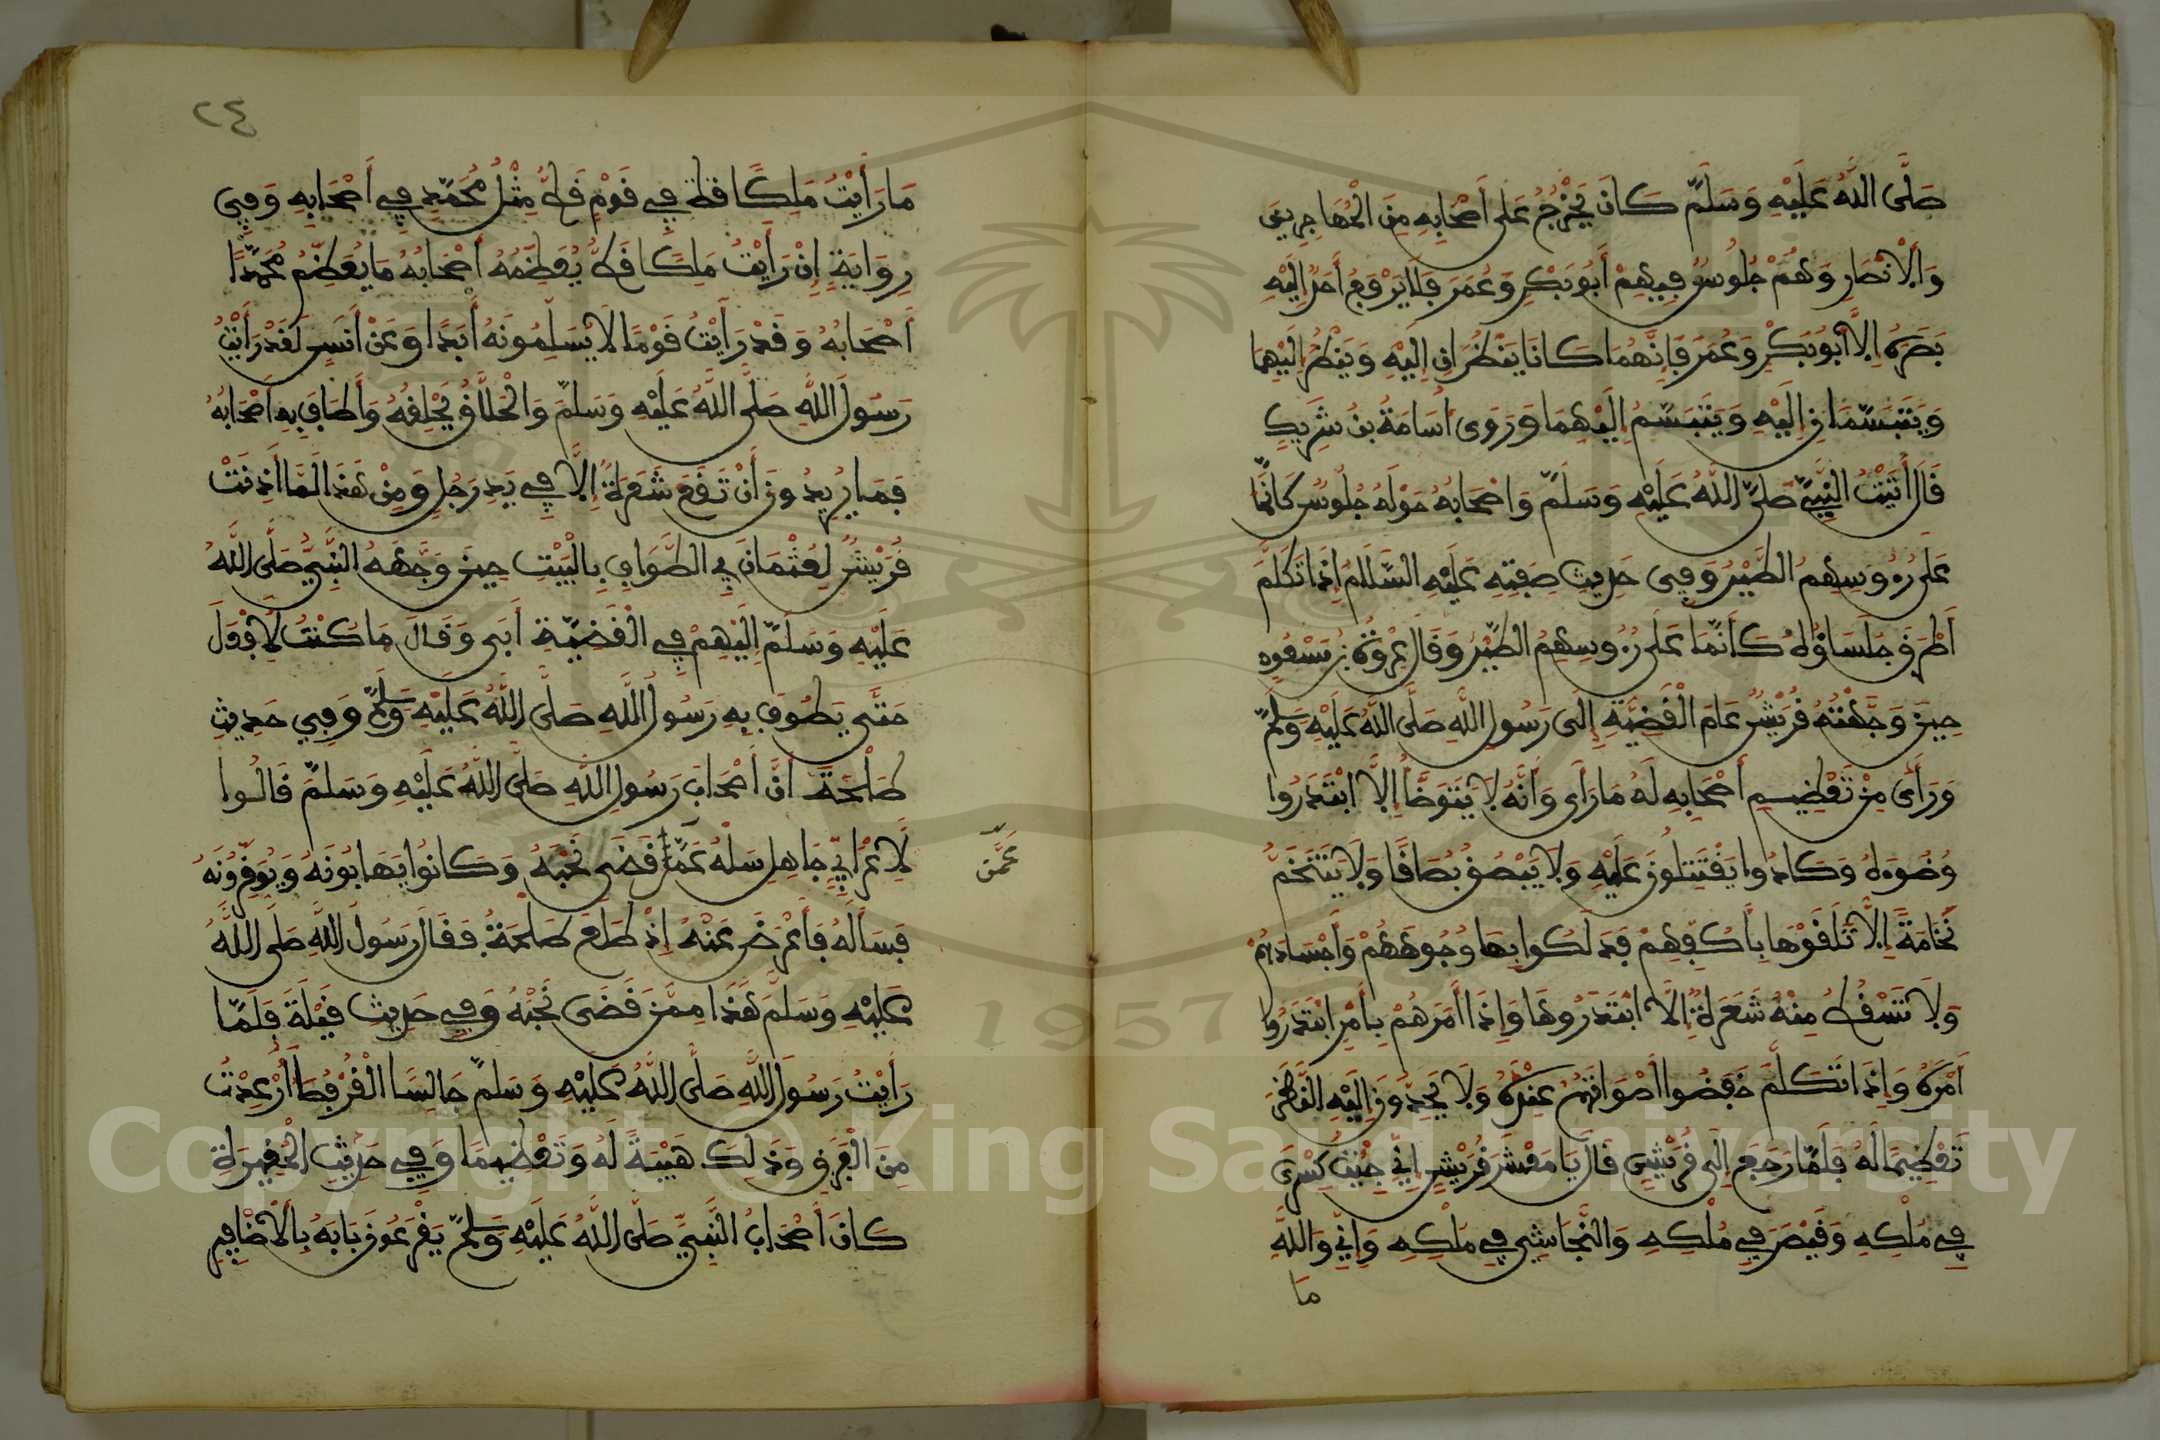 صَلَّى اللَّهُ عَلَيْهِ وَسَلَّمَ كَانَ يَخْرُجُ عَلَى أَصْحَابِهِ مِنَ الْمُهَاجِرِينَ
وَالْأَنْصَارِ وَهُمْ جُلُوسٌ فِيهِمْ أَبُو بَكْرٍ وَعُمَرَ فَلَا يَرْفَعُ أَحَدٌ إِلَيْهِ
بَصَرَهُ إِلَّا أَبُو بَكْرٍ وَعُمَرَ فَإِنَّهُمَا كَانَا يَنْظُرَانِ إِلَيْهِ وَيَنْظُرُ إِلَيْهِمَا
وَيَتَبَسَّمَانِ إِلَيْهِ وَيَتَبَسَّمُ إِلَيْهِمَا وَرَوَى أُسَامَةُ بْنُ شَرِيكٍ
قَالَ أَتَيْتُ النَّبِيَّ صَلَّى اللَّهُ عَلَيْهِ وَسَلَّمَ وَأَصْحَابُهُ حَوْلَهُ جُلُوسٌ كَأَنَّمَا
عَلَى رُءُوسِهِمُ الطَّيْرُ وَفِي حَدِيثِ صِفَتِهِ عَلَيْهِ السَّلَامُ إِذَا تَكَلَّمَ
أَطْرَقَ جُلَسَاؤُهُ كَأَنَّمَا عَلَى رُءُوسِهِمُ الطَّيْرُ وَقَالَ عُرْوَةُ بْنُ مَسْعُودٍ
حِينَ وَجَّهَتْهُ قُرَيْشٌ عَامَ الْقَضِيَّةِ إِلَى رَسُولِ اللَّهِ صَلَّى اللَّهُ عَلَيْهِ وَسَلَّمَ
وَرَأَى مِنْ تَعْظِيمِ أَصْحَابِهِ لَهُ مَا رَأَى وَأَنَّهُ لَا يَتَوَضَّأُ إِلَّا ابْتَدَرُوا
وُضُوءَهُ وَكَادُوا يَقْتَتِلُونَ عَلَيْهِ وَلَا يَبْصُقُ بُصَاقًا وَلَا يَتَنَخَّمُ
نُخَامَةً إِلَّا تَلَقَّوْهَا بِأَكُفِّهِمْ فَدَلَكُوا بِهَا وُجُوهَهُمْ وَأَجْسَادَهُمْ
وَلَا تَسْقُطُ مِنْهُ شَعَرَةٌ إِلَّا ابْتَدَرُوهَا وَإِذَا أَمَرَهُمْ بِأَمْرٍ ابْتَدَرُوا
أَمْرَهُ وَإِذَا تَكَلَّمَ خَفَضُوا أَصْوَاتَهُمْ عِنْدَهُ وَلَا يُحِدُّونَ إِلَيْهِ النَّظَرَ
تَعْظِيمًا لَهُ فَلَمَّا رَجَعَ إِلَى قُرَيْشٍ قَالَ يَا مَعْشَرَ قُرَيْشٍ إِنِّي جِئْتُ كِسْرَى
فِي مُلْكِهِ وَقَيْصَرَ فِي مُلْكِهِ وَالنَّجَاشِيَ فِي مُلْكِهِ وَإِنِّي وَاللَّهِ
مَا
٢٤
مَا رَأَيْتُ مَلِكًا قَطُّ فِي قَوْمٍ قَطُّ مِثْلُ مُحَمَّدٍ فِي أَصْحَابِهِ وَفِي
رِوَايَةٍ إِنْ رَأَيْتُ مَلِكًا قَطُّ يُعَظِّمُهُ أَصْحَابُهُ مَا يُعَظِّمُ مُحَمَّدًا
أَصْحَابُهُ وَقَدْ رَأَيْتُ قَوْمًا لَا يُسَلِّمُونَهُ أَبَدًا وَعَنْ أَنَسٍ لَقَدْ رَأَيْتُ
رَسُولَ اللَّهِ صَلَّى اللَّهُ عَلَيْهِ وَسَلَّمَ وَالْحَلَّاقُ يَحْلِقُهُ وَأَطَافَ بِهِ أَصْحَابُهُ
فَمَا يُرِيدُونَ أَنْ تَقَعَ شَعَرَةٌ إِلَّا فِي يَدِ رَجُلٍ وَمِنْ هَذَا لَمَّا أَذِنَتْ
قُرَيْشٌ لِعُثْمَانَ فِي الطَّوَافِ بِالْبَيْتِ حِينَ وَجَّهَهُ النَّبِيُّ صَلَّى اللَّهُ
عَلَيْهِ وَسَلَّمَ إِلَيْهِمْ فِي الْقَضِيَّةِ أَبَى وَقَالَ مَا كُنْتُ لِأَفْعَلَ
حَتَّى يَطُوفَ بِهِ رَسُولُ اللَّهِ صَلَّى اللَّهُ عَلَيْهِ وَسَلَّمَ وَفِي حَدِيثِ
طَلْحَةَ أَنَّ أَصْحَابَ رَسُولِ اللَّهِ صَلَّى اللَّهُ عَلَيْهِ وَسَلَّمَ قَالُوا
لِأَعْرَابِيٍّ جَاهِلٍ سَلْهُ عَمَّا قَضَى نَحْبَهُ وَكَانُوا يَهَابُونَهُ وَيُوَقِّرُونَهُ
عَمَّنْ
فَسَأَلَهُ فَأَعْرَضَ عَنْهُ إِذْ طَلَعَ طَلْحَةُ فَقَالَ رَسُولُ اللَّهِ صَلَّى اللَّهُ
عَلَيْهِ وَسَلَّمَ هَذَا مِمَّنْ قَضَى نَحْبَهُ وَفِي حَدِيثِ قَيْلَةَ فَلَمَّا
رَأَيْتُ رَسُولَ اللَّهِ صَلَّى اللَّهُ عَلَيْهِ وَسَلَّمَ جَالِسًا الْقُرْفُصَا أُرْعِدْتُ
مِنَ الْفَرَقِ وَذَلِكَ هَيْبَةً لَهُ وَتَعْظِيمًا وَفِي حَدِيثِ الْمُغِيرَةِ
كَانَ أَصْحَابُ النَّبِيِّ صَلَّى اللَّهُ عَلَيْهِ وَسَلَّمَ يَقْرَعُونَ بَابَهُ بِالْأَظَافِيرِ
1957
Copyright © King Saud University